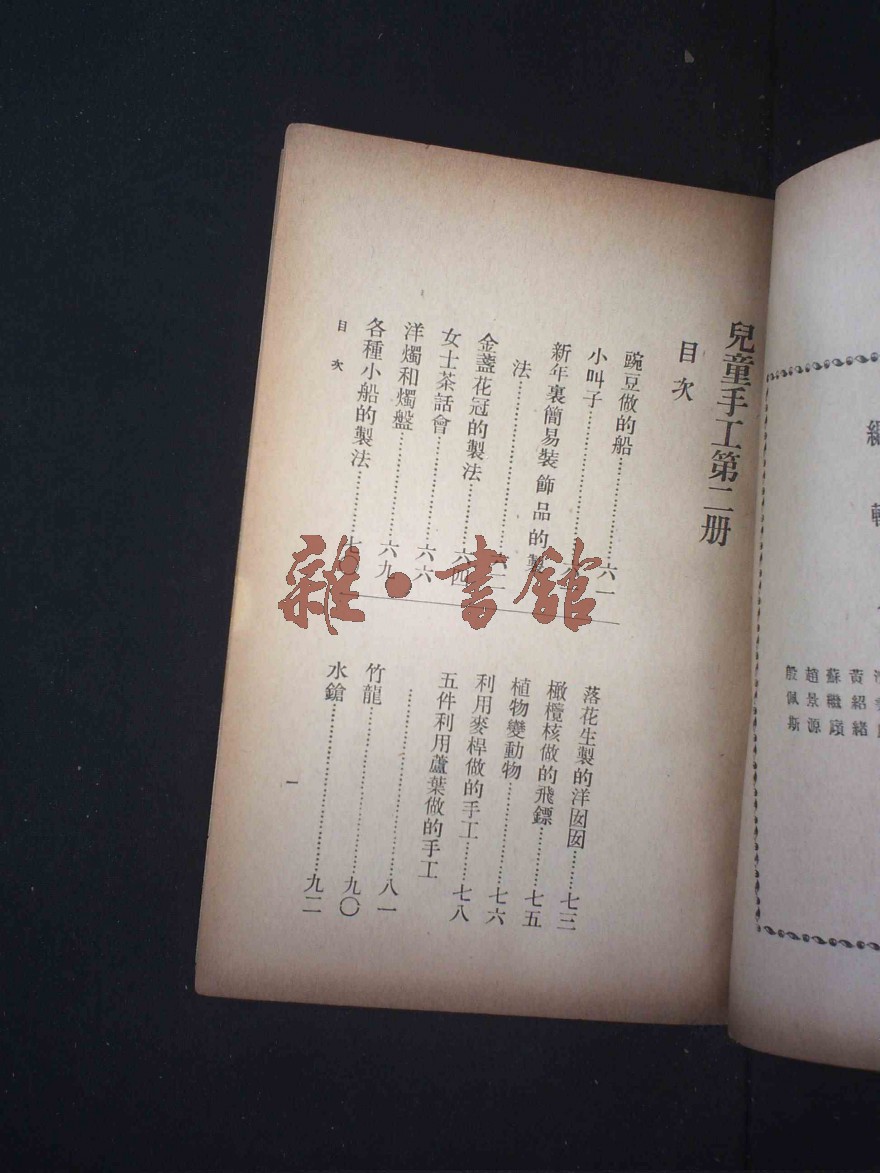 兒童手工第二册
目次
豌豆做的船……六一
小叫子……六
新年裏簡易裝飾品的製
法……六
金盞花冠的製法……六四
女士茶話會……六六
洋燭和燭盤……六九
各種小船的製法……七〇
落花生製的洋囡囡……七三
橄欖核做的飛鏢……七五
植物變動物……七六
利用麥桿做的手工……七八
五件利用蘆葉做的手工
……八一
竹龍……九〇
水鎗……九二
目次
一
雜·書館
黃紹緒
蘇繼廎
趙景源
殷佩斯